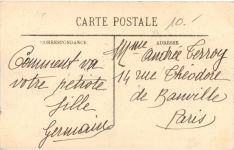 CARTE POSTALE
10.-
CORRESPONDANCE
ADRESSE
Comment va
votre petiote
fille
Germaine
Mme André Terroy
14 rue Théodore
de Banville
Paris